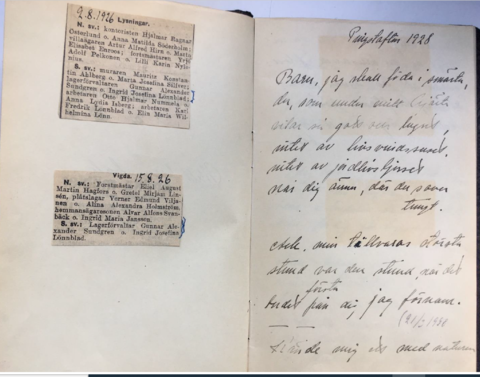 9.8.1926 Lysningar.
N. sv.: kontoristen Hjalmar Ragnar
Österlund o. Anna Matilda Söderholm;
villaägaren Artur Alfred Horn o. Märta
Elisabet Enroos; fortsmästaren Yrjö
Adolf Pelkonen o. Lilli Karin Nyle-
nius.
S. sv.: muraren Maurits Konstan-
tin Ahlberg o. Maria Josefina Sillivers;
lagerförvaltaren Gunnar Alexander
Sundgren o. Ingrid Josefina Lönnblad;
arbetaren Otto Hjalmar Nummela o.
Anna Lydia Isberg; arbetaren Karl
Fredrik Lönnblad o. Elin Maria Wil-
helmina Lönn.
Vigda. 15.8.26
N. sv.: Forstmästar Elisi August
Martin Hagfors o. Gretel Mirjam Lin-
sén, plåtslagar Verner Edmund Vilja-
nen o. Alina Alexandra Holmström,
hemmansägarsonen Alfar Alfons Svan-
bäck o. Ingrid Maria Janssen.
S. sv.: Lagerförvaltar Gunnar Ale-
xander Sundgren o. Ingrid Josefina
Lönnblad.
Pingstafton 1928
Barn, jag skall föda i smärta,
du, som under mitt
vilar
intet av livsvindarnas
intet av jordlivsljuset
når dig ännu, där du sover
tungt.
och min största
stund var den stund, när det
första
budet från dig jag förnam.
mig med naturen